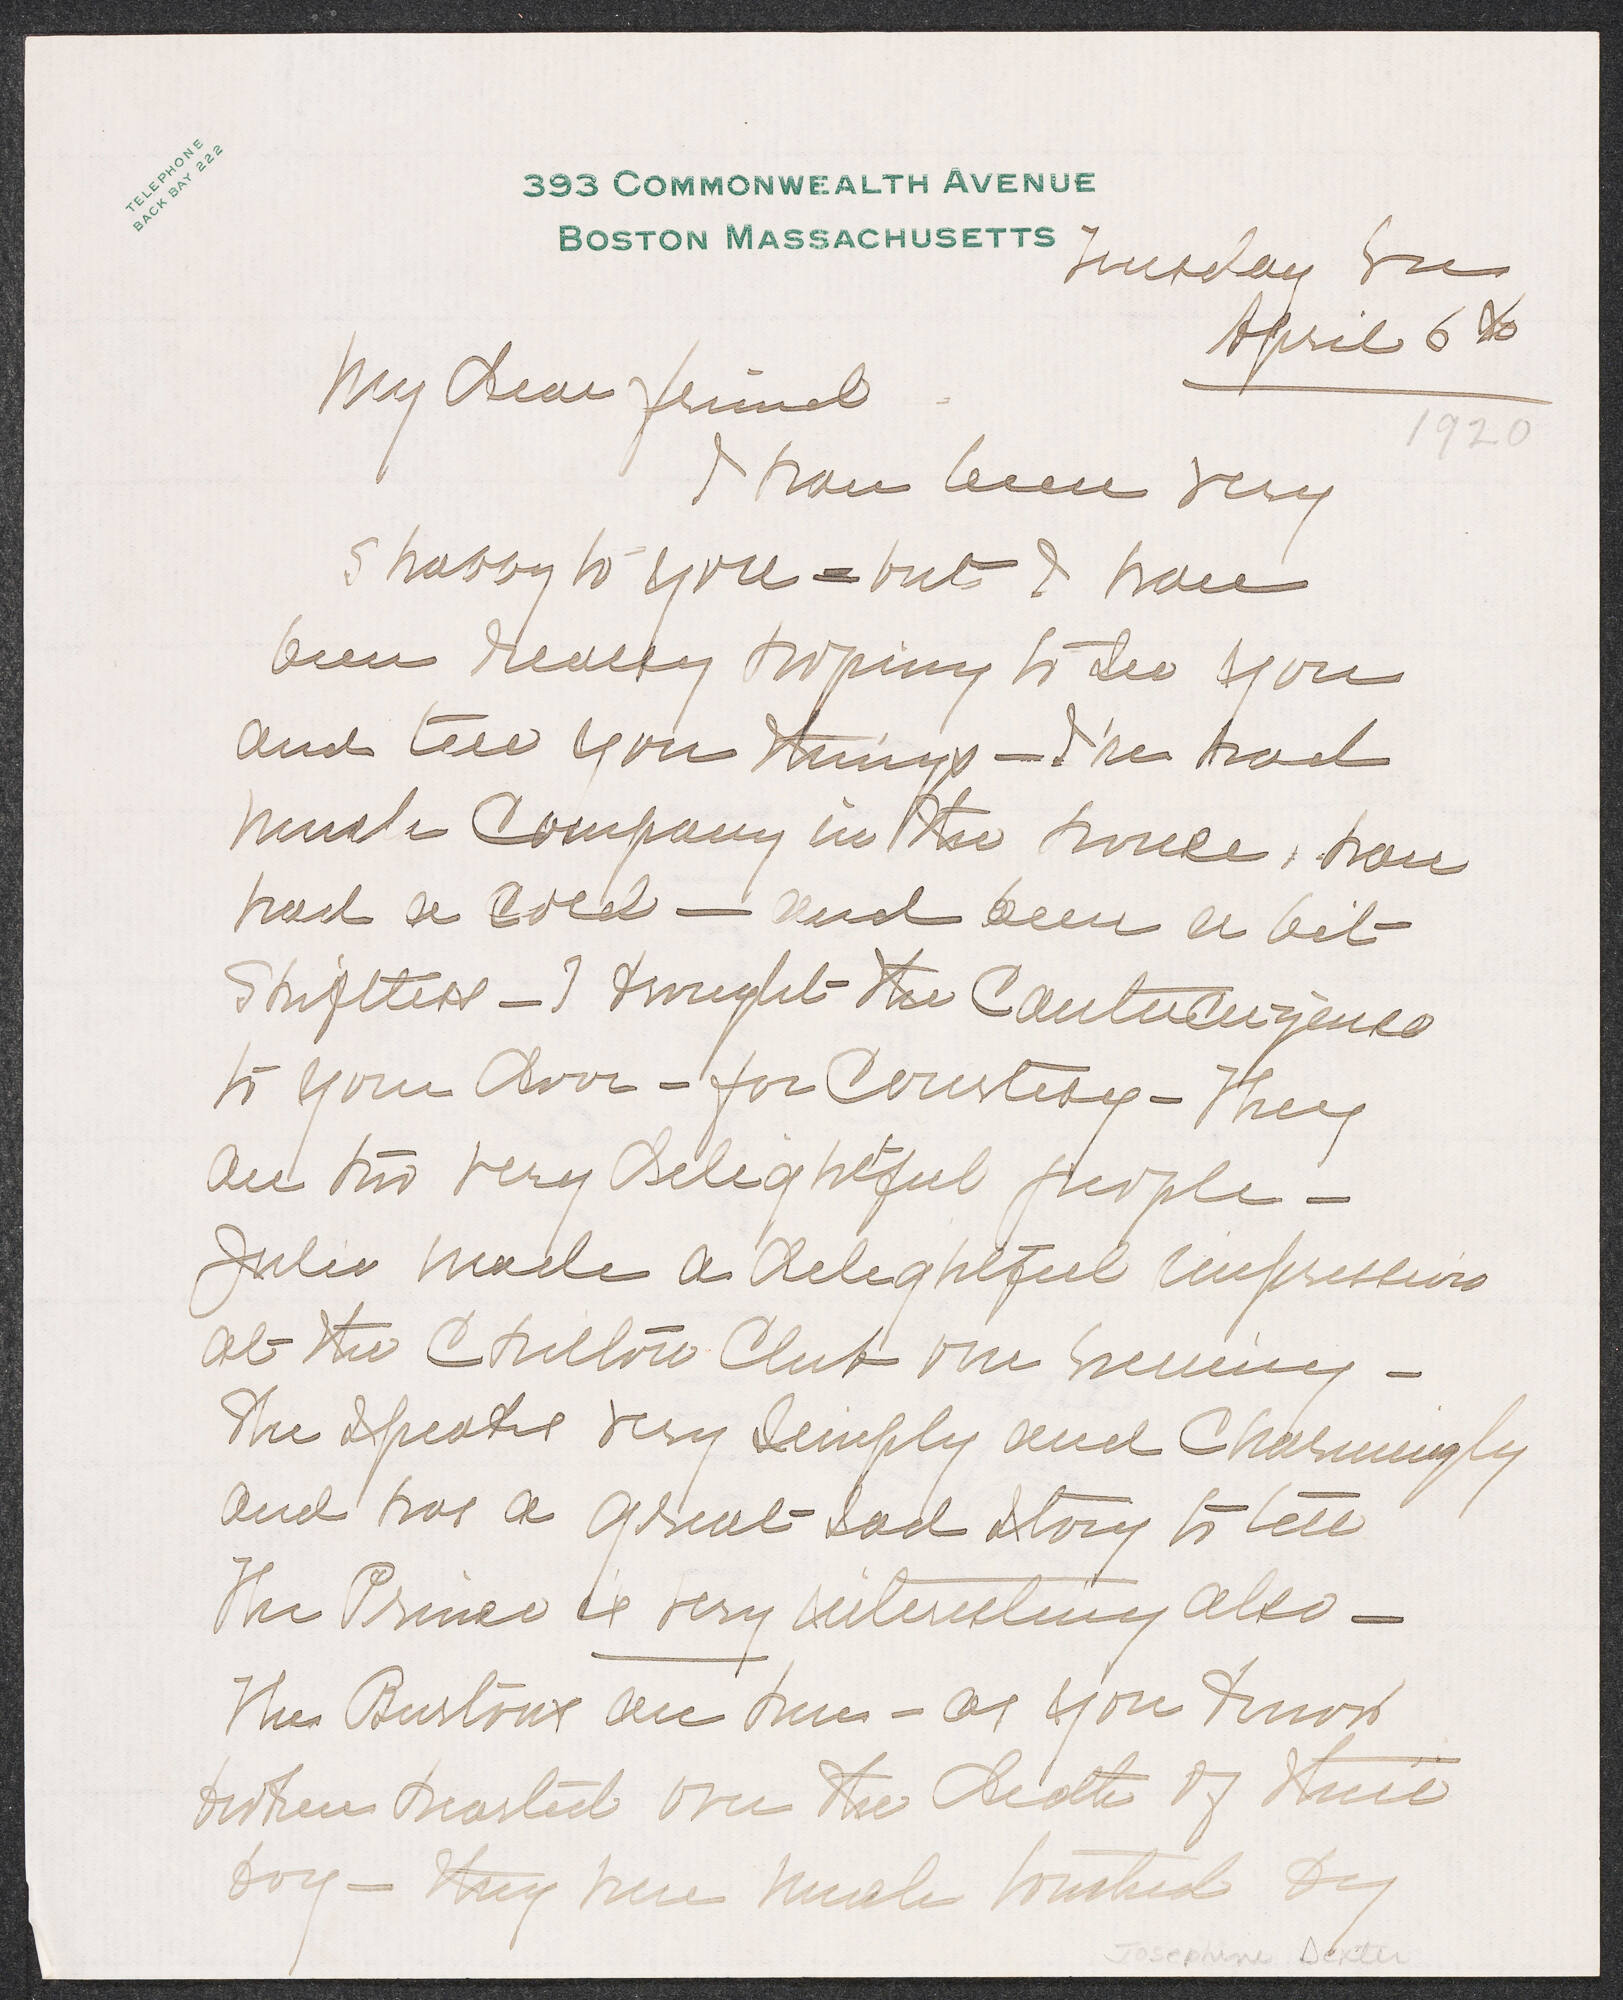 TELEPHONE
BACK BAY 222
393 COMMONWEALTH AVENUE
BOSTON MASSACHUSETTS
Tuesday Eve
April 6th
1920
My dear friend
I have been very
shabby to you = but I have
been really hoping to see you
and tell you things - I've had
much Company in the house, have
had a cold — and been a bit
Shiftless - I brought the Cantacuzenes
to your door - for Courtesy - They
are two very delightful people -
Julia made a delightful impression
at the Chilton Club one Evening -
She speaks very simply and Charmingly
and has a great sad story to tell
The Prince is very interesting also -
The Burtons are here - as you know
broken hearted over the death of their
boy - they were much touched by
Josephine Dexter